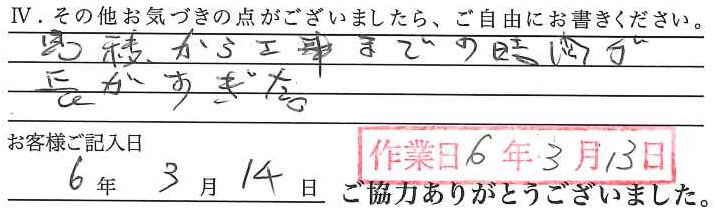 Ⅳ.その他お気づきの点がございましたら、ご自由にお書きください。
見積から工事までの時間が
長がすぎた。
お客様ご記入日
作業日6年3月13日
6年3月14日
ご協力ありがとうございました。